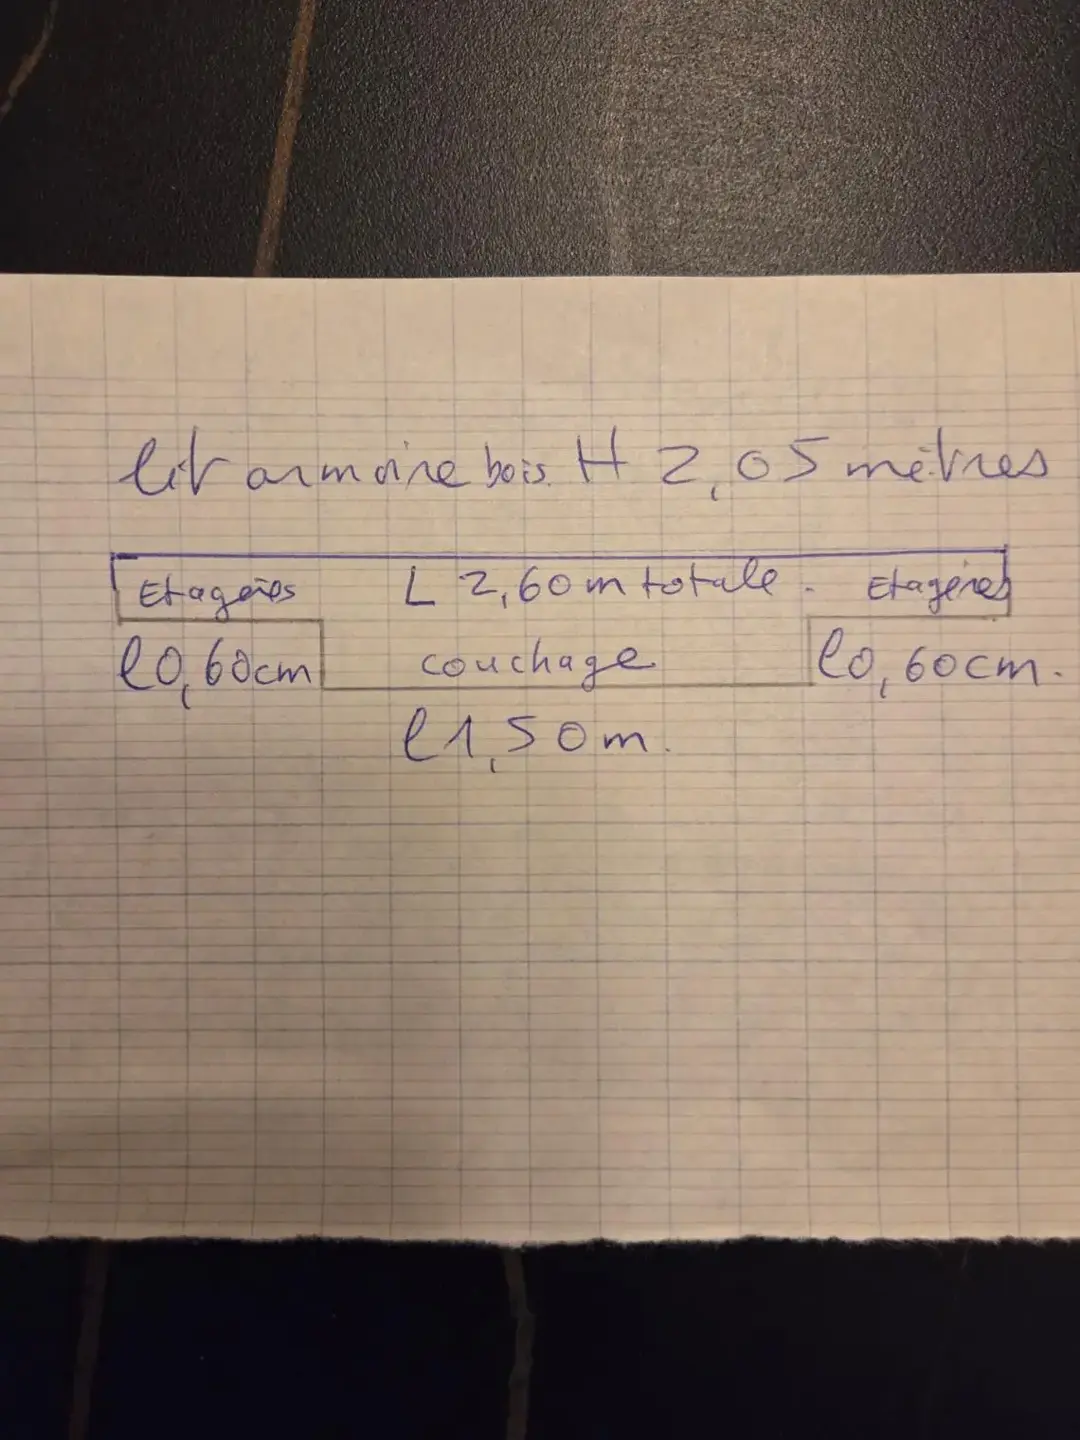 lit armoire bois. H 2,05 mètres
Etagères L 2,60 m totale. Etagères
l0,60cm couchage l0,60cm.
l1,50m.